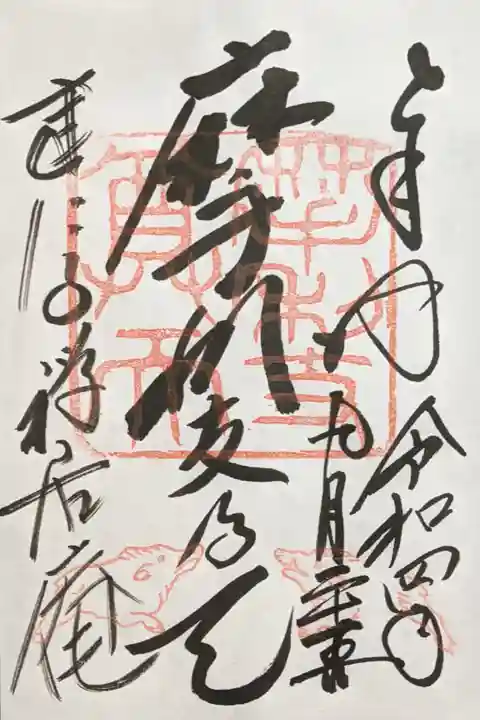 奉拝
令和四年
九月
摩利支尊天
建仁寺禅居庵